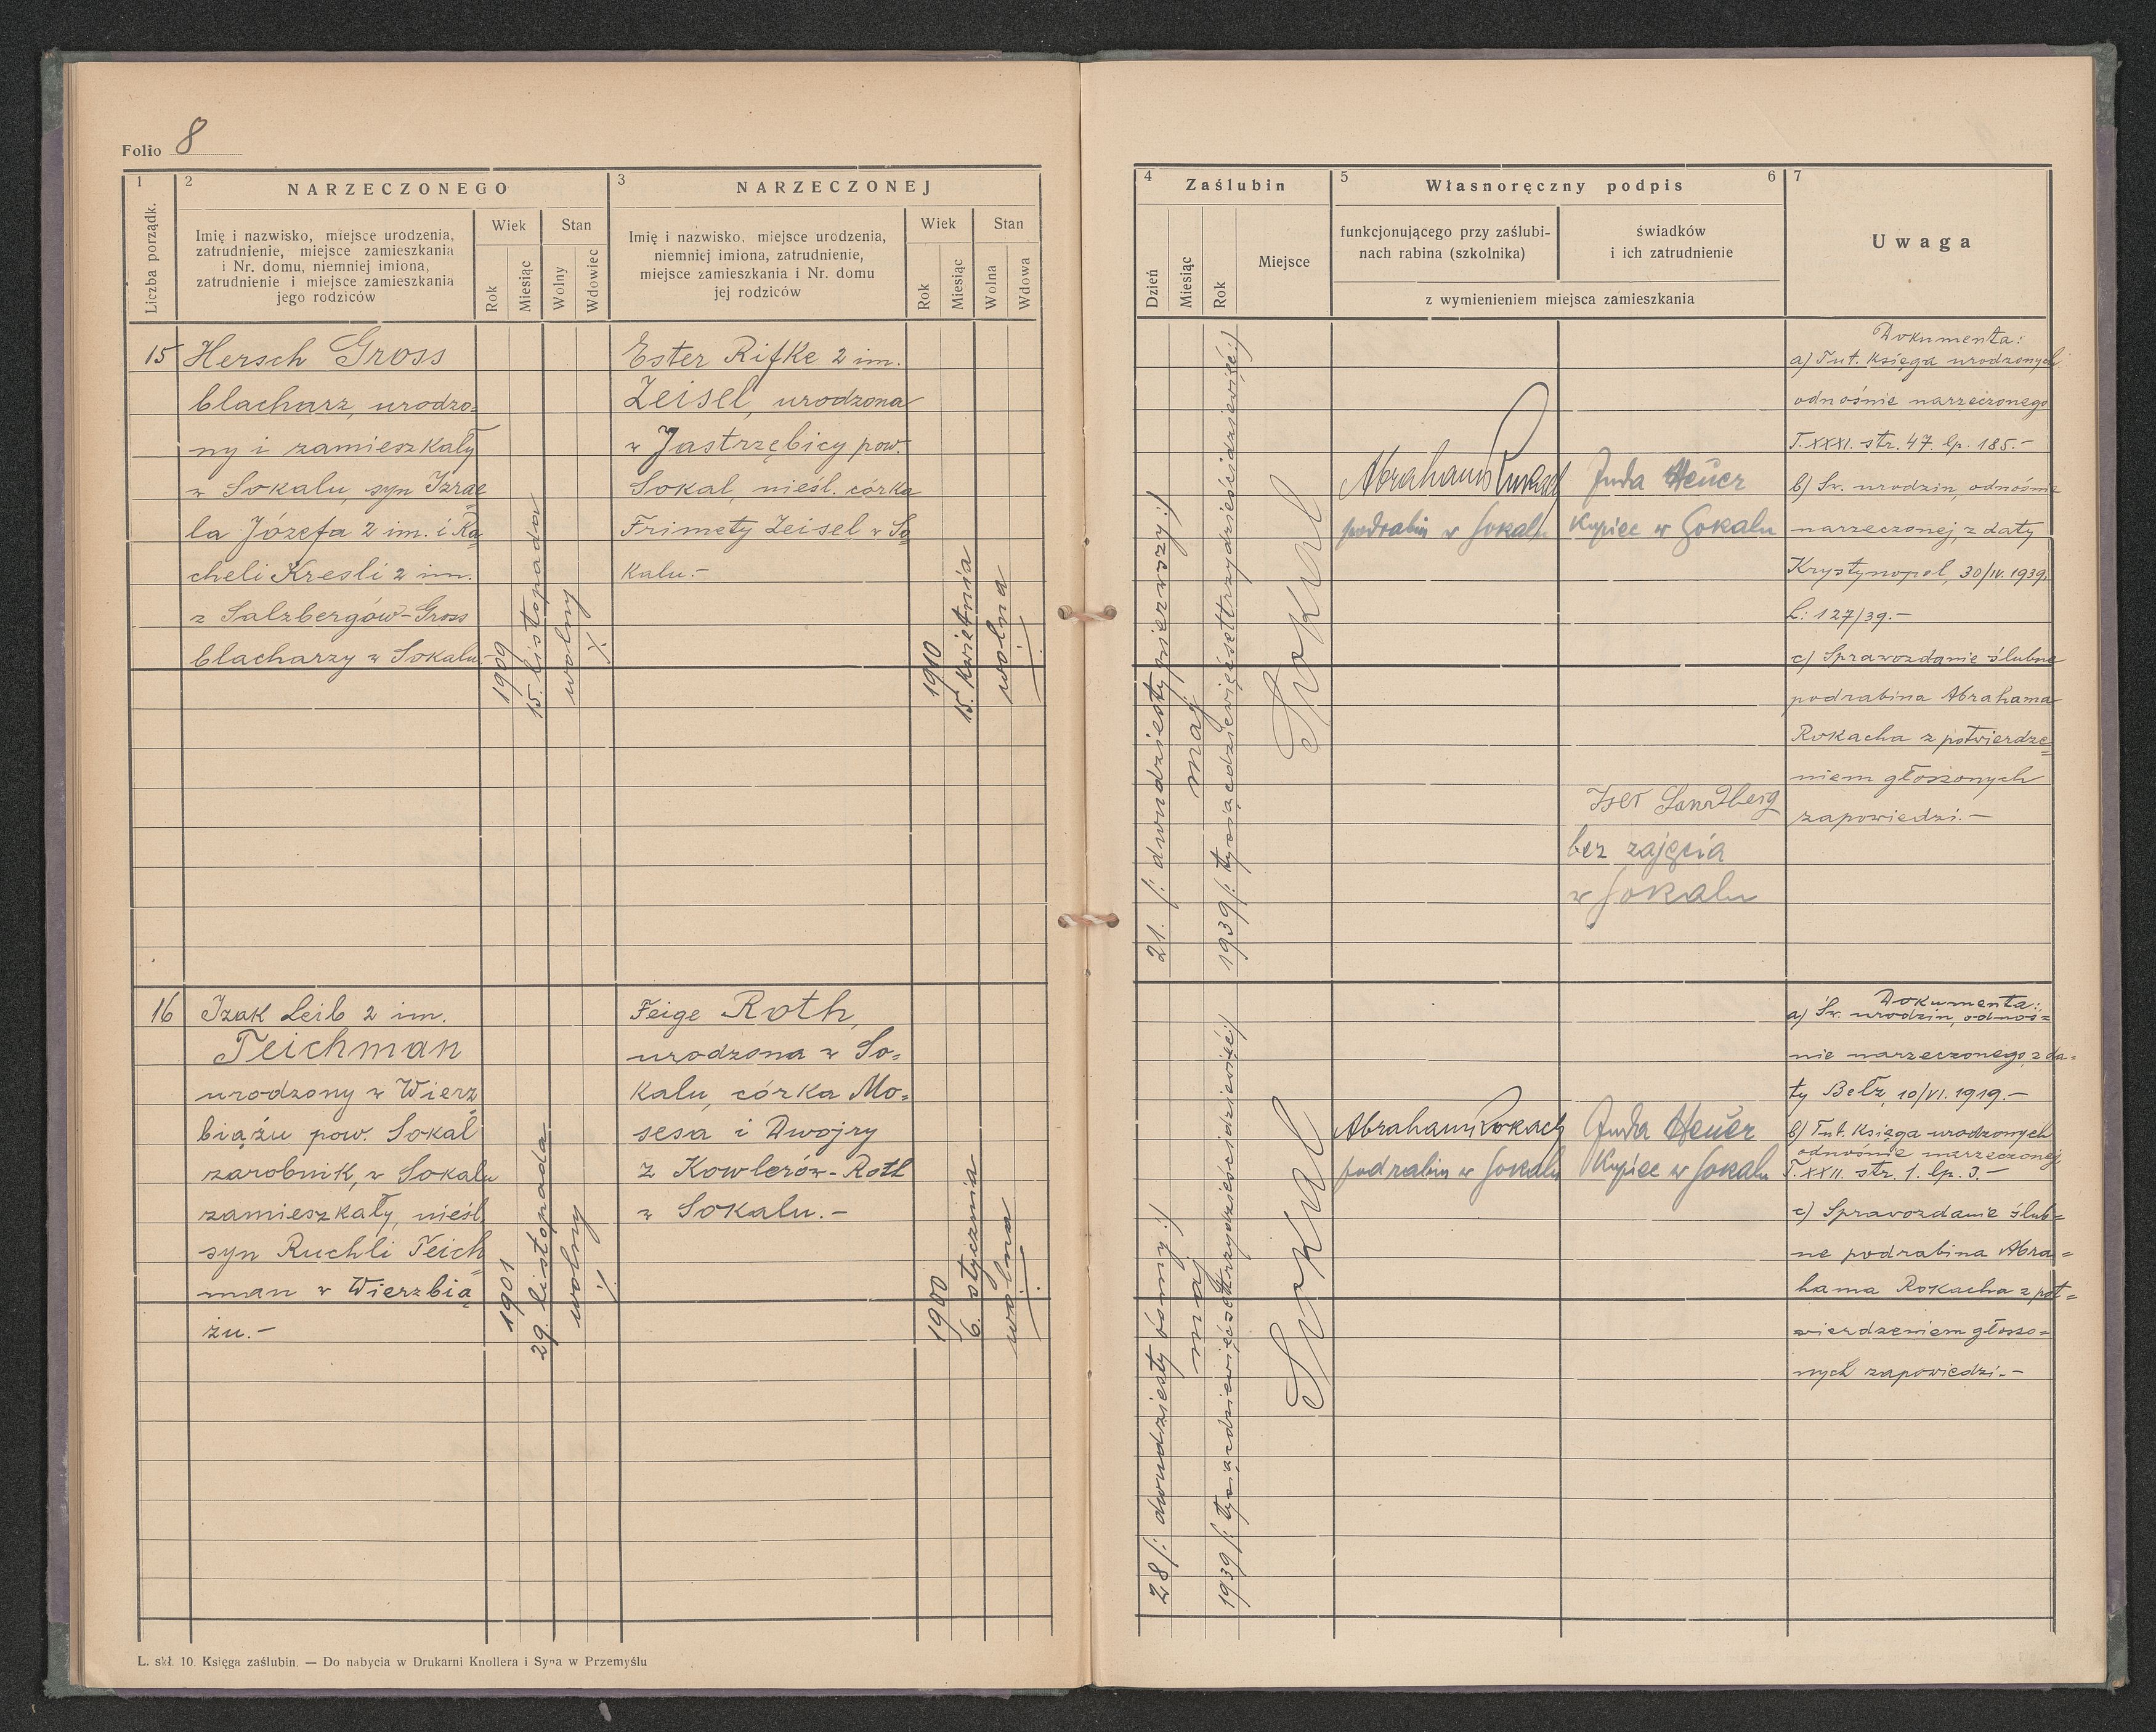 Folio 8
1
2
NARZECZONEGO
3
NARZECZONEJ
Liczba porządk.
Imię i nazwisko, miejsce urodzenia,
zatrudnienie, miejsce zamieszkania
i Nr. domu, niemniej imiona,
zatrudnienie i miejsce zamieszkania
jego rodziców
Wiek
Stan
Rok
Miesiąc
Wolny
Wdowiec
Imię i nazwisko, miejsce urodzenia,
niemniej imiona, zatrudnienie,
miejsce zamieszkania i Nr. domu
jej rodziców
Wiek
Stan
Rok
Miesiąc
Wolna
Wdowa
15
Hersch Gross
blacharz, urodzo=
ny i zamieszkały
w Sokalu, syn Izrae
la Józefa 2 im. i Ra=
cheli Kresli 2 im.
z Salzbergów-Gross
blacharzy w Sokalu.-
1909
15. listopada
wolny
·/·
Ester Rifke 2 im.
Zeisel, urodzona
w Jastrzębicy pow.
Sokal, nieśl. córka
Frimety Zeisel w So=
kalu.-
1910
15. kwietnia
wolna
·/·
16
Izak Leib 2 im.
Teichman
urodzony w Wierz=
biążu pow. Sokal
zarobnik, w Sokalu
zamieszkały, nieśl.
syn Ruchli Teich=
man w Wierzbią=
żu.-
1901
29. listopada
wolny
·/·
Feige Roth,
urodzona w So=
kalu, córka Mo=
sesa i Dwojry
z Kowlerów-Roth
w Sokalu.-
1900
6. stycznia
wolna
·/·
L. skł. 10. Księga zaślubin. — Do nabycia w Drukarni Knollera i Syna w Przemyślu
4
Zaślubin
5
Własnoręczny podpis
6
7
Dzień
Miesiąc
Rok
Miejsce
funkcjonującego przy zaślubi-
nach rabina (szkolnika)
świadków
i ich zatrudnienie
z wymienieniem miejsca zamieszkania
Uwaga
21. /: dwudziesty pierwszy :/
maj
1939 /: tysiącdziewięćsettrzydzieścidziewięć :/
Sokal
Abraham Rokach
podrabin w Sokalu
Juda Heuer
Kupiec w Sokalu
Iser Sandberg
bez zajęcia
w Sokalu
Dokumenta:
a) Tut. księga urodzonych
odnośnie narzeczonego
T. XXXI. str. 47. lp. 185.-
b) Św. urodzin, odnośnie
narzeczonej, z daty
Krystynopol, 30/IV. 1939.
L: 127/39.-
c) Sprawozdanie ślubne
podrabina Abrahama
Rokacha z potwierdze=
niem głoszonych
zapowiedzi.-
28 /: dwudziesty ósmy :/
maj
1939 /: tysiącdziewięćsettrzydzieścidziewięć :/
Sokal
Abraham Rokach
podrabin w Sokalu
Juda Heuer
Kupiec w Sokalu
Dokumenta:
a) Św. urodzin, odnoś=
nie narzeczonego, z da=
ty Bełz, 10/VI. 1919.-
b) Tut. księga urodzonych
odnośnie narzeczonej
T. XXII. str. 1. lp. 3.-
c) Sprawozdanie ślub=
ne podrabina Abra=
hama Rokacha z pot=
wierdzeniem głoszo=
nych zapowiedzi.-